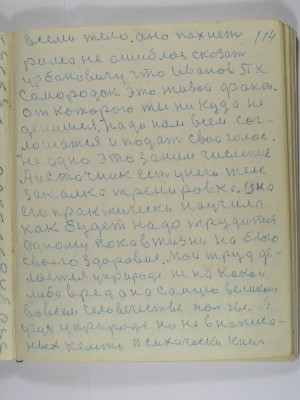 всему телу. оно пахнет 114
рима не ошиблся сказат
урбановичу что Иванов П к
Самородок это живой факт.
от которого ты никуда не
денишся. надо нам всем сог-
лошатся и подат свой голос.
не одно это заним числется
А источник ест унего теле
закалка тренировка. она
его практически научила
как будет надо трудится
одному пока в жизни на благо
своего здоровия. мой труд де-
лается уприроде не на какой
либо вред а на самую великою
вовсем человечестве
уприроде но не в написа-
ных кемто психически книг